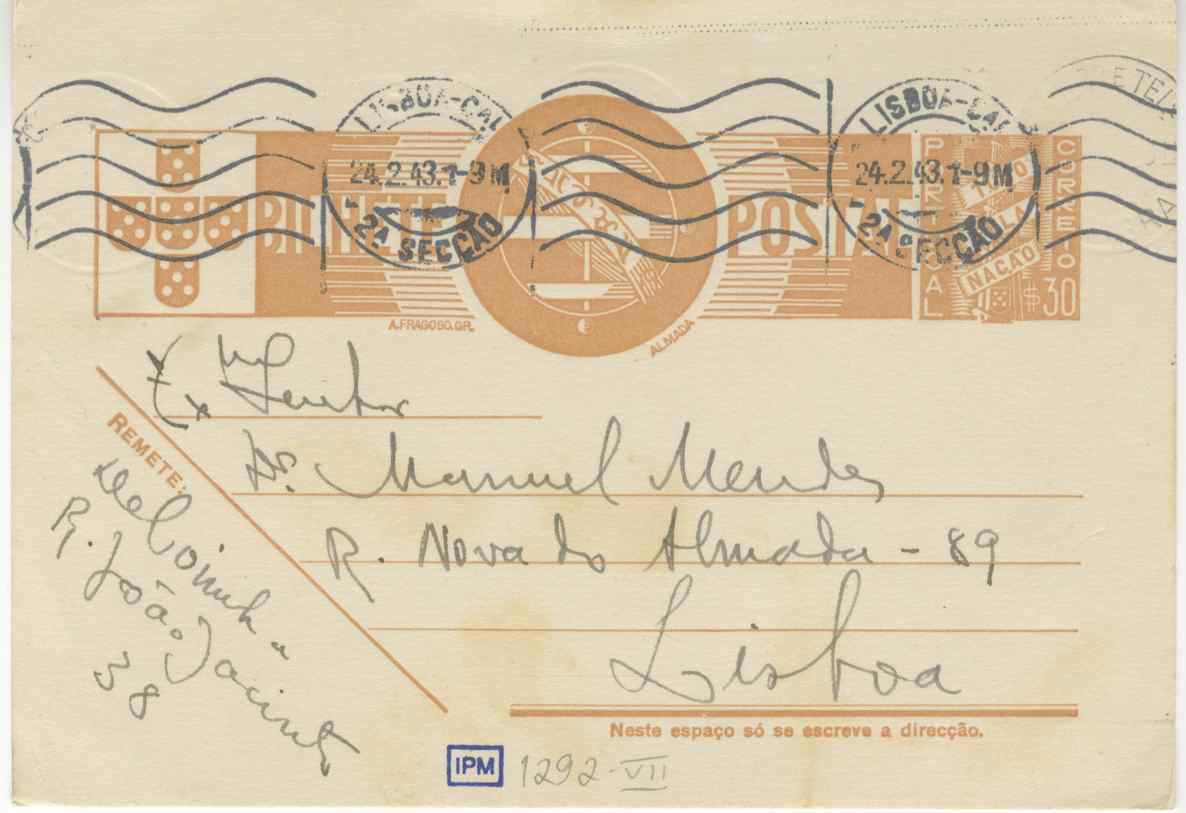 LISBOA-CAL
24.2.43.1-9M
2A SECÇÃO
LISBOA-CAL
24.2.43.1-9M
2A SECÇÃO
BILHETE POSTAL
PORTUGAL
CORREIO
TUDO
PELA
NAÇÃO
$30
A.FRAGOSO.GR.
ALMADA
Exmo Senhor
Dr. Manuel Mendes
R. Nova do Almada - 89
Lisboa
REMETE:
R. João Jacinto
38
Neste espaço só se escreve a direcção.
IPM 1292-VII